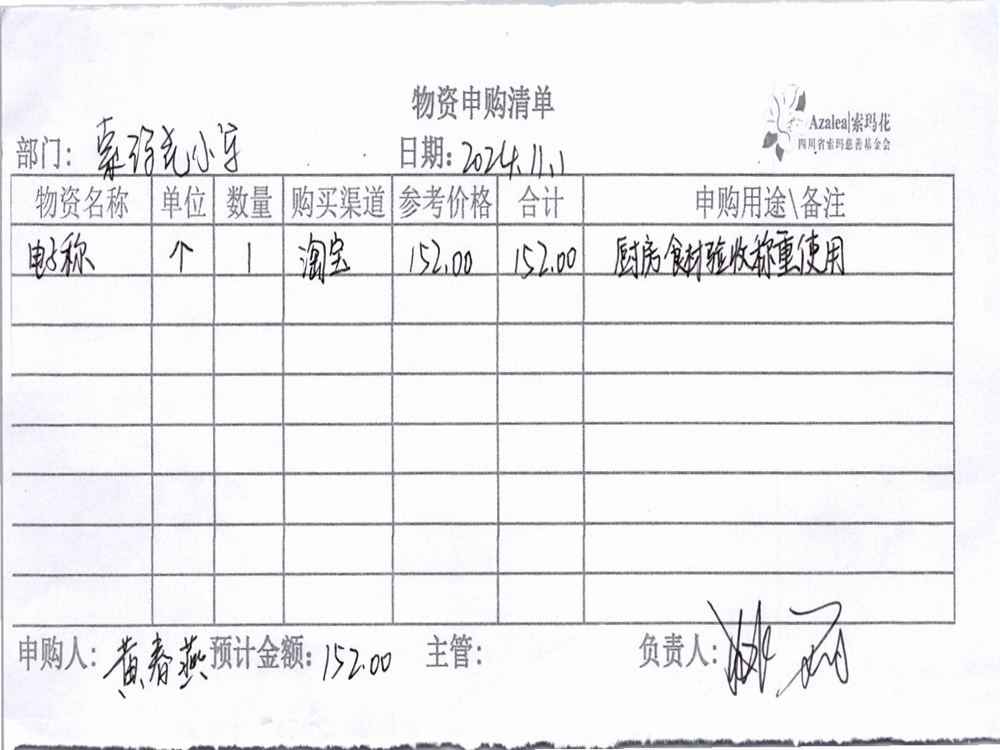 物资申购清单
Azalea|索玛花
四川省索玛慈善基金会
部门: 索玛花小学 日期: 2024.11.1
物资名称 单位 数量 购买渠道 参考价格 合计 申购用途\备注
电子称 个 1 淘宝 152.00 152.00 厨房食材验收称重使用
申购人: 黄春燕 预计金额: 152.00 主管: 负责人: